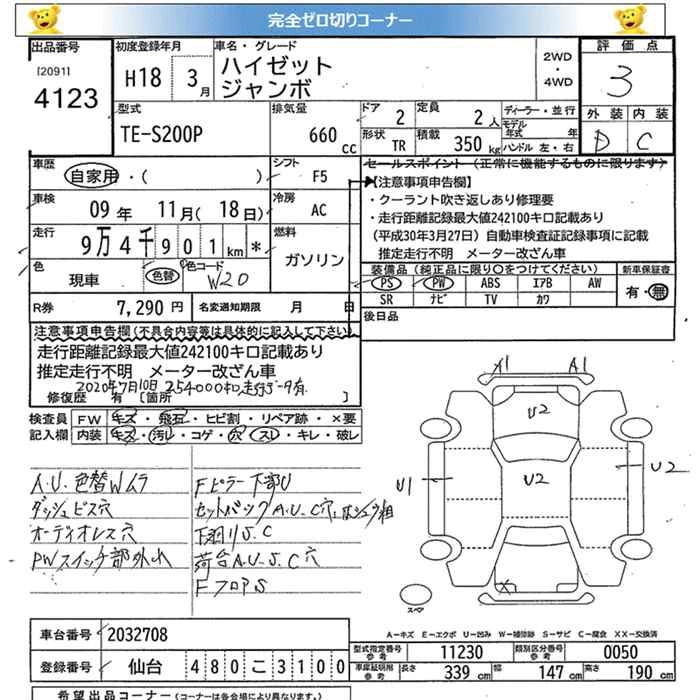 完全ゼロ切りコーナー
出品番号 初度登録年月 車名・グレード 2WD・4WD 評価点
[2091]
4123 H18 3月 ハイゼット
ジャンボ 3
外装 内装
D C
型式 排気量 ドア 2 定員 2人 ディーラー・並行
TE-S200P 660cc 形状 TR 積載 350kg モデル年式 年
ハンドル 左・右
車歴 自家用・( ) シフト F5 セールスポイント(正常に機能するものに限ります)
【注意事項申告欄】
車検 09年 11月( 18日) 冷房 AC ・クーラント吹き返しあり修理要
・走行距離記録最大値242100キロ記載あり
走行 9万4千901km * 燃料 ガソリン (平成30年3月27日)自動車検査証記録事項に記載
推定走行不明 メーター改ざん車
色 現車 色替 色コード W20 装備品(純正品に限り○をつけてください) 新車保証書
PS PW ABS エアB AW 有・無
SR ナビ TV カワ
R券 7,290円 名変通知期限 月 日 後日品
注意事項申告欄(不具合内容等は具体的に記入して下さい)
走行距離記録最大値242100キロ記載あり
推定走行不明 メーター改ざん車
2020年7月10日 254000キロ走行データ有
修復歴 有 [箇所 ]
検査員 FW キズ・飛石・ヒビ割・リペア跡・×要
記入欄 内装 キズ・汚レ・コゲ・穴・スレ・キレ・破レ
A.U.色替Wムラ Fピラー下部U
ダッシュビス穴 セットバックA.U.C穴
オーディオレス穴 下廻りS.C
PWスイッチ部外れ 荷台A.U.S.C穴
FフロアS
X1 A1
U2
U1 U2 U2
X
スペア
A-キズ E-エクボ U-凹み W-補修跡 S-サビ C-腐食 XX-交換済
車台番号 2032708
型式指定番号参考 11230 類別区分番号参考 0050
登録番号 仙台 480こ3100
車庫証明用参考 長さ 339cm 幅 147cm 高さ 190cm
希望出品コーナー(コーナーは各会場により異なります。)